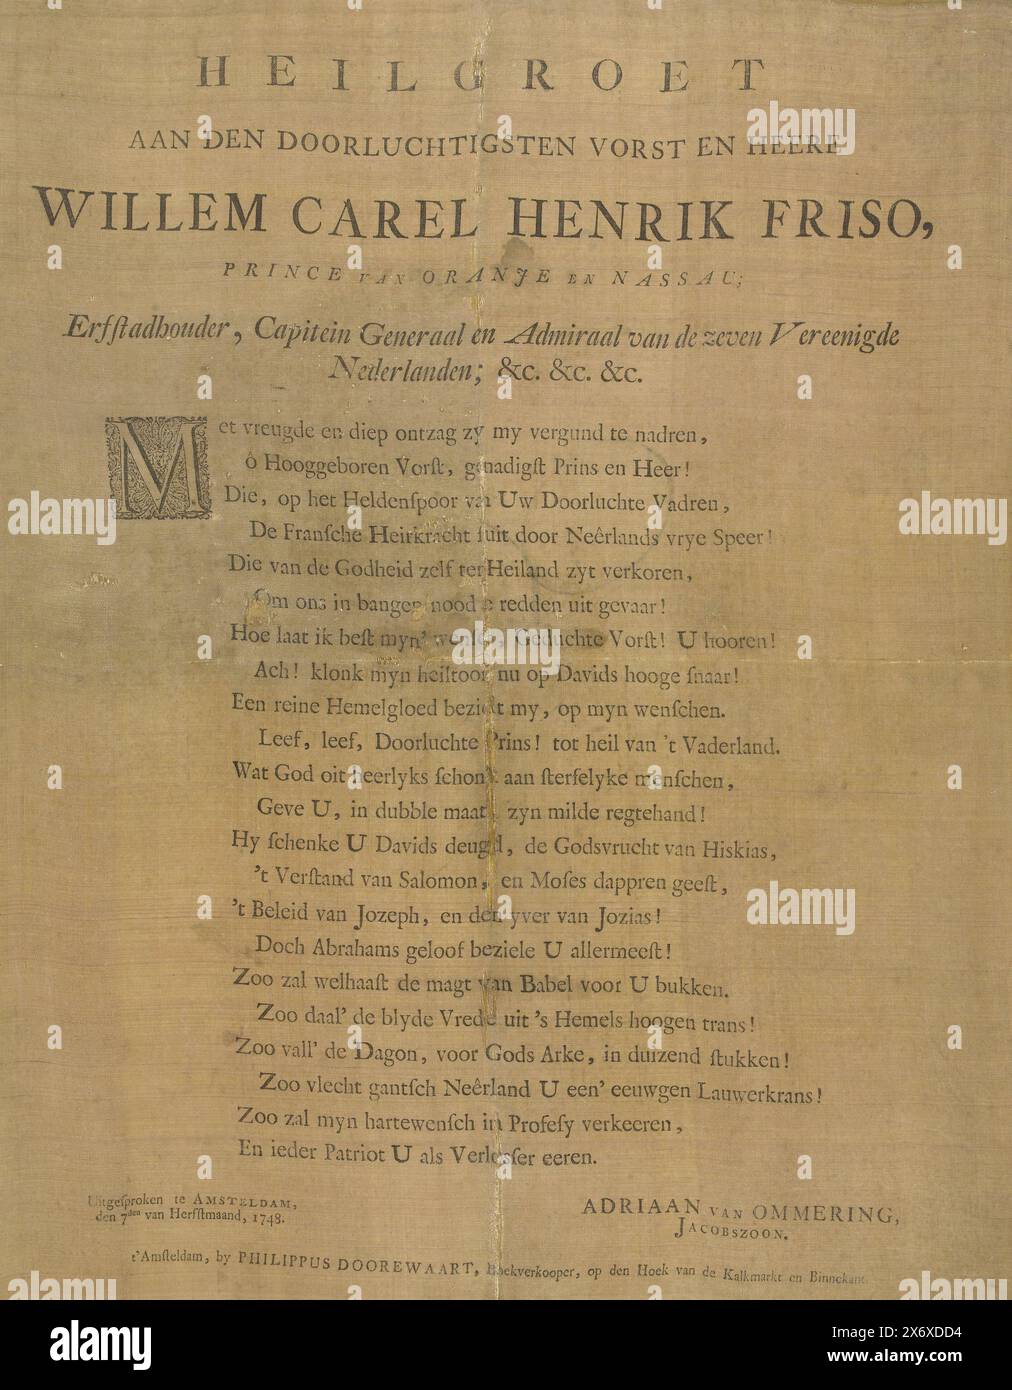 HEILGROET
AAN DEN DOORLUCHTIGSTEN VORST EN HEERE
WILLEM CAREL HENRIK FRISO,
PRINCE VAN ORANJE EN NASSAU;
Erfſtadhouder, Capitein Generaal en Admiraal van de zeven Vereenigde
Nederlanden; &c. &c. &c.
Met vreugde en diep ontzag zy my vergund te nadren,
ô Hooggeboren Vorſt, genadigſt Prins en Heer!
Die, op het Heldenſpoor van Uw Doorluchte Vadren,
De Franſche Heirkracht ſtuit door Neêrlands vrye Speer!
Die van de Godheid zelf ter Heiland zyt verkoren,
Om ons in bangen nood te redden uit gevaar!
Hoe laat ik beſt myn' Geduchte Vorſt! U hooren!
Ach! klonk myn heiltoon nu op Davids hooge ſnaar!
Een reine Hemelgloed bezielt my, op myn wenſchen.
Leef, leef, Doorluchte Prins! tot heil van 't Vaderland.
Wat God oit heerlyks ſchonk aan ſterfelyke menſchen,
Geve U, in dubble maat, zyn milde regtehand!
Hy ſchenke U Davids deugd, de Godsvrucht van Hiskias,
't Verſtand van Salomon, en Moſes dappren geeſt,
't Beleid van Jozeph, en den yver van Jozias!
Doch Abrahams geloof beziele U allermeeſt!
Zoo zal welhaaſt de magt van Babel voor U bukken.
Zoo daal' de blyde Vrede uit 's Hemels hoogen trans!
Zoo vall' de Dagon, voor Gods Arke, in duizend ſtukken!
Zoo vlecht gantſch Neêrland U een' eeuwgen Lauwerkrans!
Zoo zal myn hartewenſch in Profeſy verkeeren,
En ieder Patriot U als Verlosſer eeren.
Uitgeſproken te AMSTELDAM,
den 7den van Herfſtmaand, 1748.
ADRIAAN VAN OMMERING,
JACOBSZOON.
t'Amſteldam, by PHILIPPUS DOOREWAART, Boekverkooper, op den Hoek van de Kalkmarkt en Binnekant
alamy
Image ID: 2K6XDD4
www.alamy.com